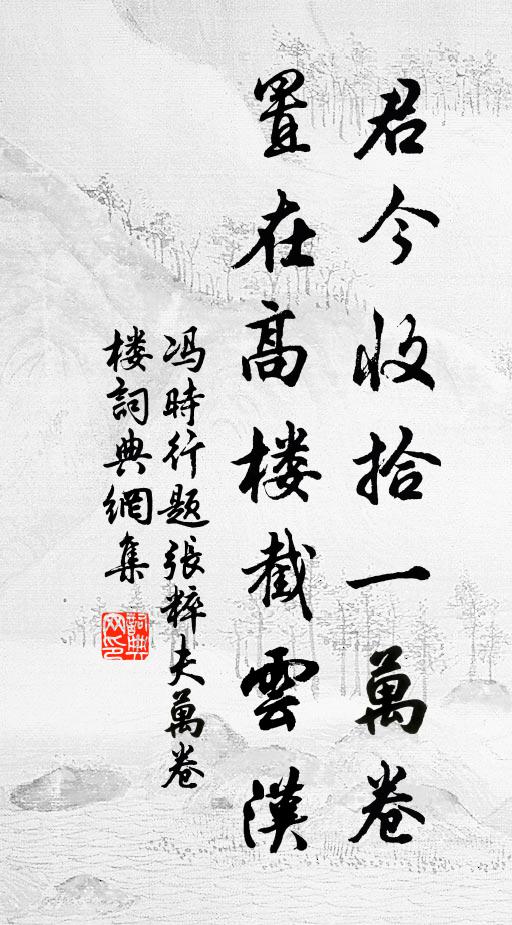 君今收拾一萬卷
置在高楼截雲漢
冯時行题張粹夫萬卷
楼詞典網集
詞典網印